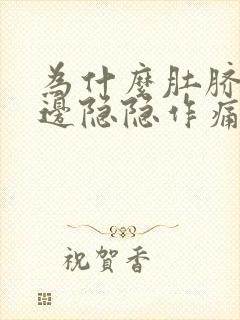 为什麼肚脐
邊隐隐作痛
祝賀香